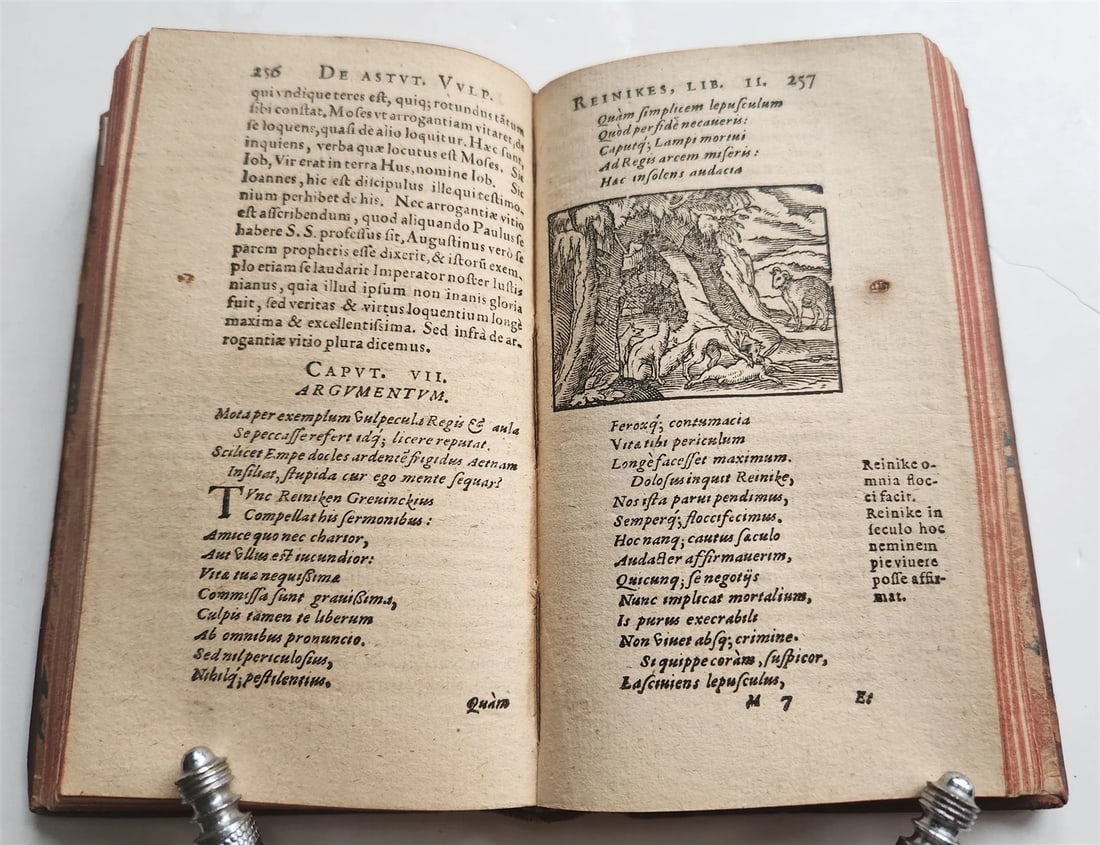 256 DE ASTVT. VVLP.
qui vndique teres est, quiq; rotundus tātum
sibi constat. Moses vt arrogantiam vitaret, de
se loquens, quasi de alio loquitur. Hæc sunt,
inquiens, verba quæ locutus est Moses. Sic
Iob, Vir erat in terra Hus, nomine Iob. Sic
Ioannes, hic est discipulus ille qui testimo-
nium perhibet de his. Nec arrogantiæ vitio
est asscribendum, quod aliquando Paulus se
habere S. S. professus sit, Augustinus verò se
parem prophetis esse dixerit, & istorū exem-
plo etiam se laudarit Imperator noster Iusti-
nianus, quia illud ipsum non inanis gloria
fuit, sed veritas & virtus loquentium longè
maxima & excellentissima. Sed infrà de ar-
rogantiæ vitio plura dicemus.
CAPVT. VII.
ARGVMENTVM.
Mota per exemplum vulpecula Regis & aula
Se peccasse refert idq; licere reputat.
Scilicet Empedocles ardentē frigidus Aetnam
Insiliat, stupida cur ego mente sequar?
TVnc Reiniken Greuinckius
Compellat his sermonibus:
Amice quo nec charior,
Aut vllus est iucundior:
Vita tua nequißima
Commissa sunt grauißima,
Culpis tamen te liberum
Ab omnibus pronuncio.
Sed nil periculosius,
Nihilq; pestilentius,
Quàm
REINIKES, LIB. II. 257
Quàm simplicem lepusculum
Quòd perfidè necaueris:
Caputq; Lampi mortui
Ad Regis arcem miseris:
Hac insolens audacia
Feroxq; contumacia
Vita tibi periculum
Longè facesset maximum.
Dolosus inquit Reinike,
Nos ista parui pendimus,
Semperq; flocci fecimus.
Hoc nanq; cautus saculo
Audacter affirmauerim,
Quicunq; se negotijs
Nunc implicat mortalium,
Is purus execrabili
Non viuet absq; crimine.
Si quippe coràm, suspicor,
Lasciuiens lepusculus,
Reinike o-
mnia floc-
ci facit.
Reinike in
seculo hoc
neminem
pie viuere
posse affir-
mat.
M 7 Et